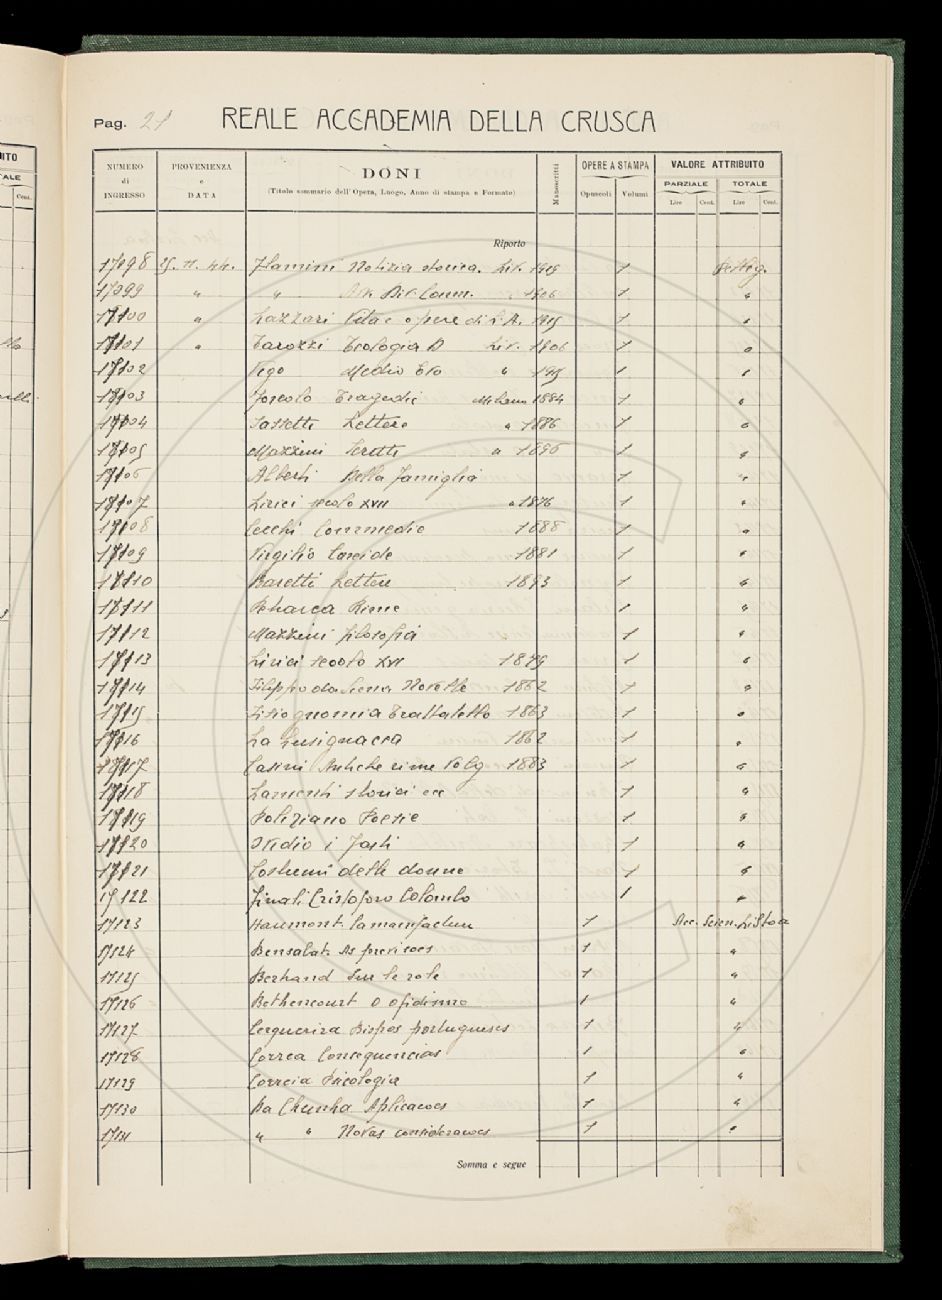 Pag. 21 REALE ACCADEMIA DELLA CRUSCA
NUMERO di INGRESSO PROVENIENZA e DATA DONI (Titolo sommario dell'Opera, Luogo, Anno di stampa e Formato) Manoscritti OPERE A STAMPA Opuscoli Volumi VALORE ATTRIBUITO PARZIALE Lire Cent. TOTALE Lire Cent.
Riporto
17098 25. 11. 44. Flamini Notizia storica. Liv. 1915 1
17099 " " 1906 1 "
17100 " Lazzari Vita e opere di L. A. 1915 1 "
17101 " Tarozzi Teologia D Liv. 1906 1 "
17102 Vigo Medio Evo " 1 "
17103 Foscolo Tragedie Milano 1884 1 "
17104 Sassetti Lettere " 1886 1 "
17105 Mazzini Scritti " 1896 1 "
17106 Alberti Della famiglia 1 "
17107 Lirici secolo XVII " 1876 1 "
17108 Cecchi Commedie 1888 1 "
17109 Virgilio Eneide 1881 1 "
17110 Baretti Lettere 1893 1 "
17111 Petrarca Rime 1 "
17112 Mazzini filosofia 1 "
17113 Lirici secolo XVII 1879 1 "
17114 Filippo da Siena Novelle 1862 1 "
17115 Fisiognomia Trattatello 1863 1 "
17116 La Lusignacca 1862 1 "
17117 Casini Antiche rime volg 1883 1 "
17118 Lamenti storici ecc 1 "
17119 Poliziano Poesie 1 "
17120 Ovidio i Fasti 1 "
17121 Costumi delle donne 1 "
17122 Finali Cristoforo Colombo 1 "
17123 Haumont. la manufacture 1 Acc. Scien. Lisboa
17124 Bensabat. As previsoes 1 "
17125 Bertrand Sur le role 1 "
17126 Bethencourt O ofidismo 1 "
17127 Cerqueira Bispos portugueses 1 "
17128 Correa Consequencias 1 "
17129 Correia Psicologia 1 "
17130 Da Chunha Aplicacoes 1 "
17131 " " Novas consideracoes 1 "
Somma e segue